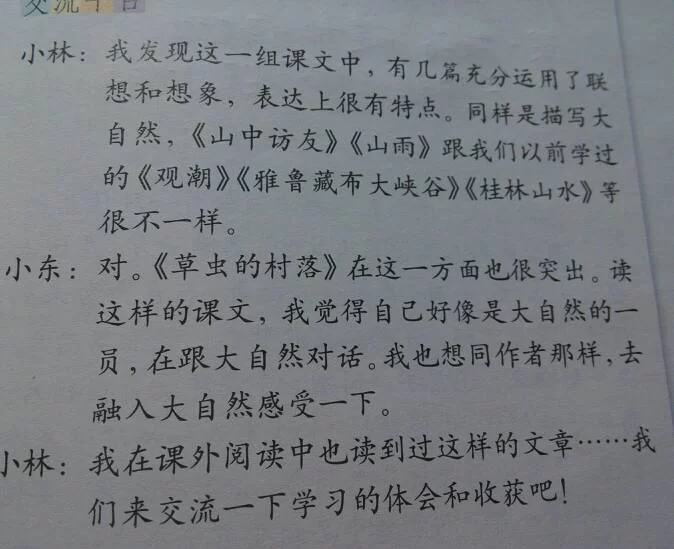 交流平台
小林：我发现这一组课文中，有几篇充分运用了联
想和想象，表达上很有特点。同样是描写大
自然，《山中访友》《山雨》跟我们以前学过
的《观潮》《雅鲁藏布大峡谷》《桂林山水》等
很不一样。
小东：对。《草虫的村落》在这一方面也很突出。读
这样的课文，我觉得自己好像是大自然的一
员，在跟大自然对话。我也想同作者那样，去
融入大自然感受一下。
小林：我在课外阅读中也读到过这样的文章……我
们来交流一下学习的体会和收获吧！